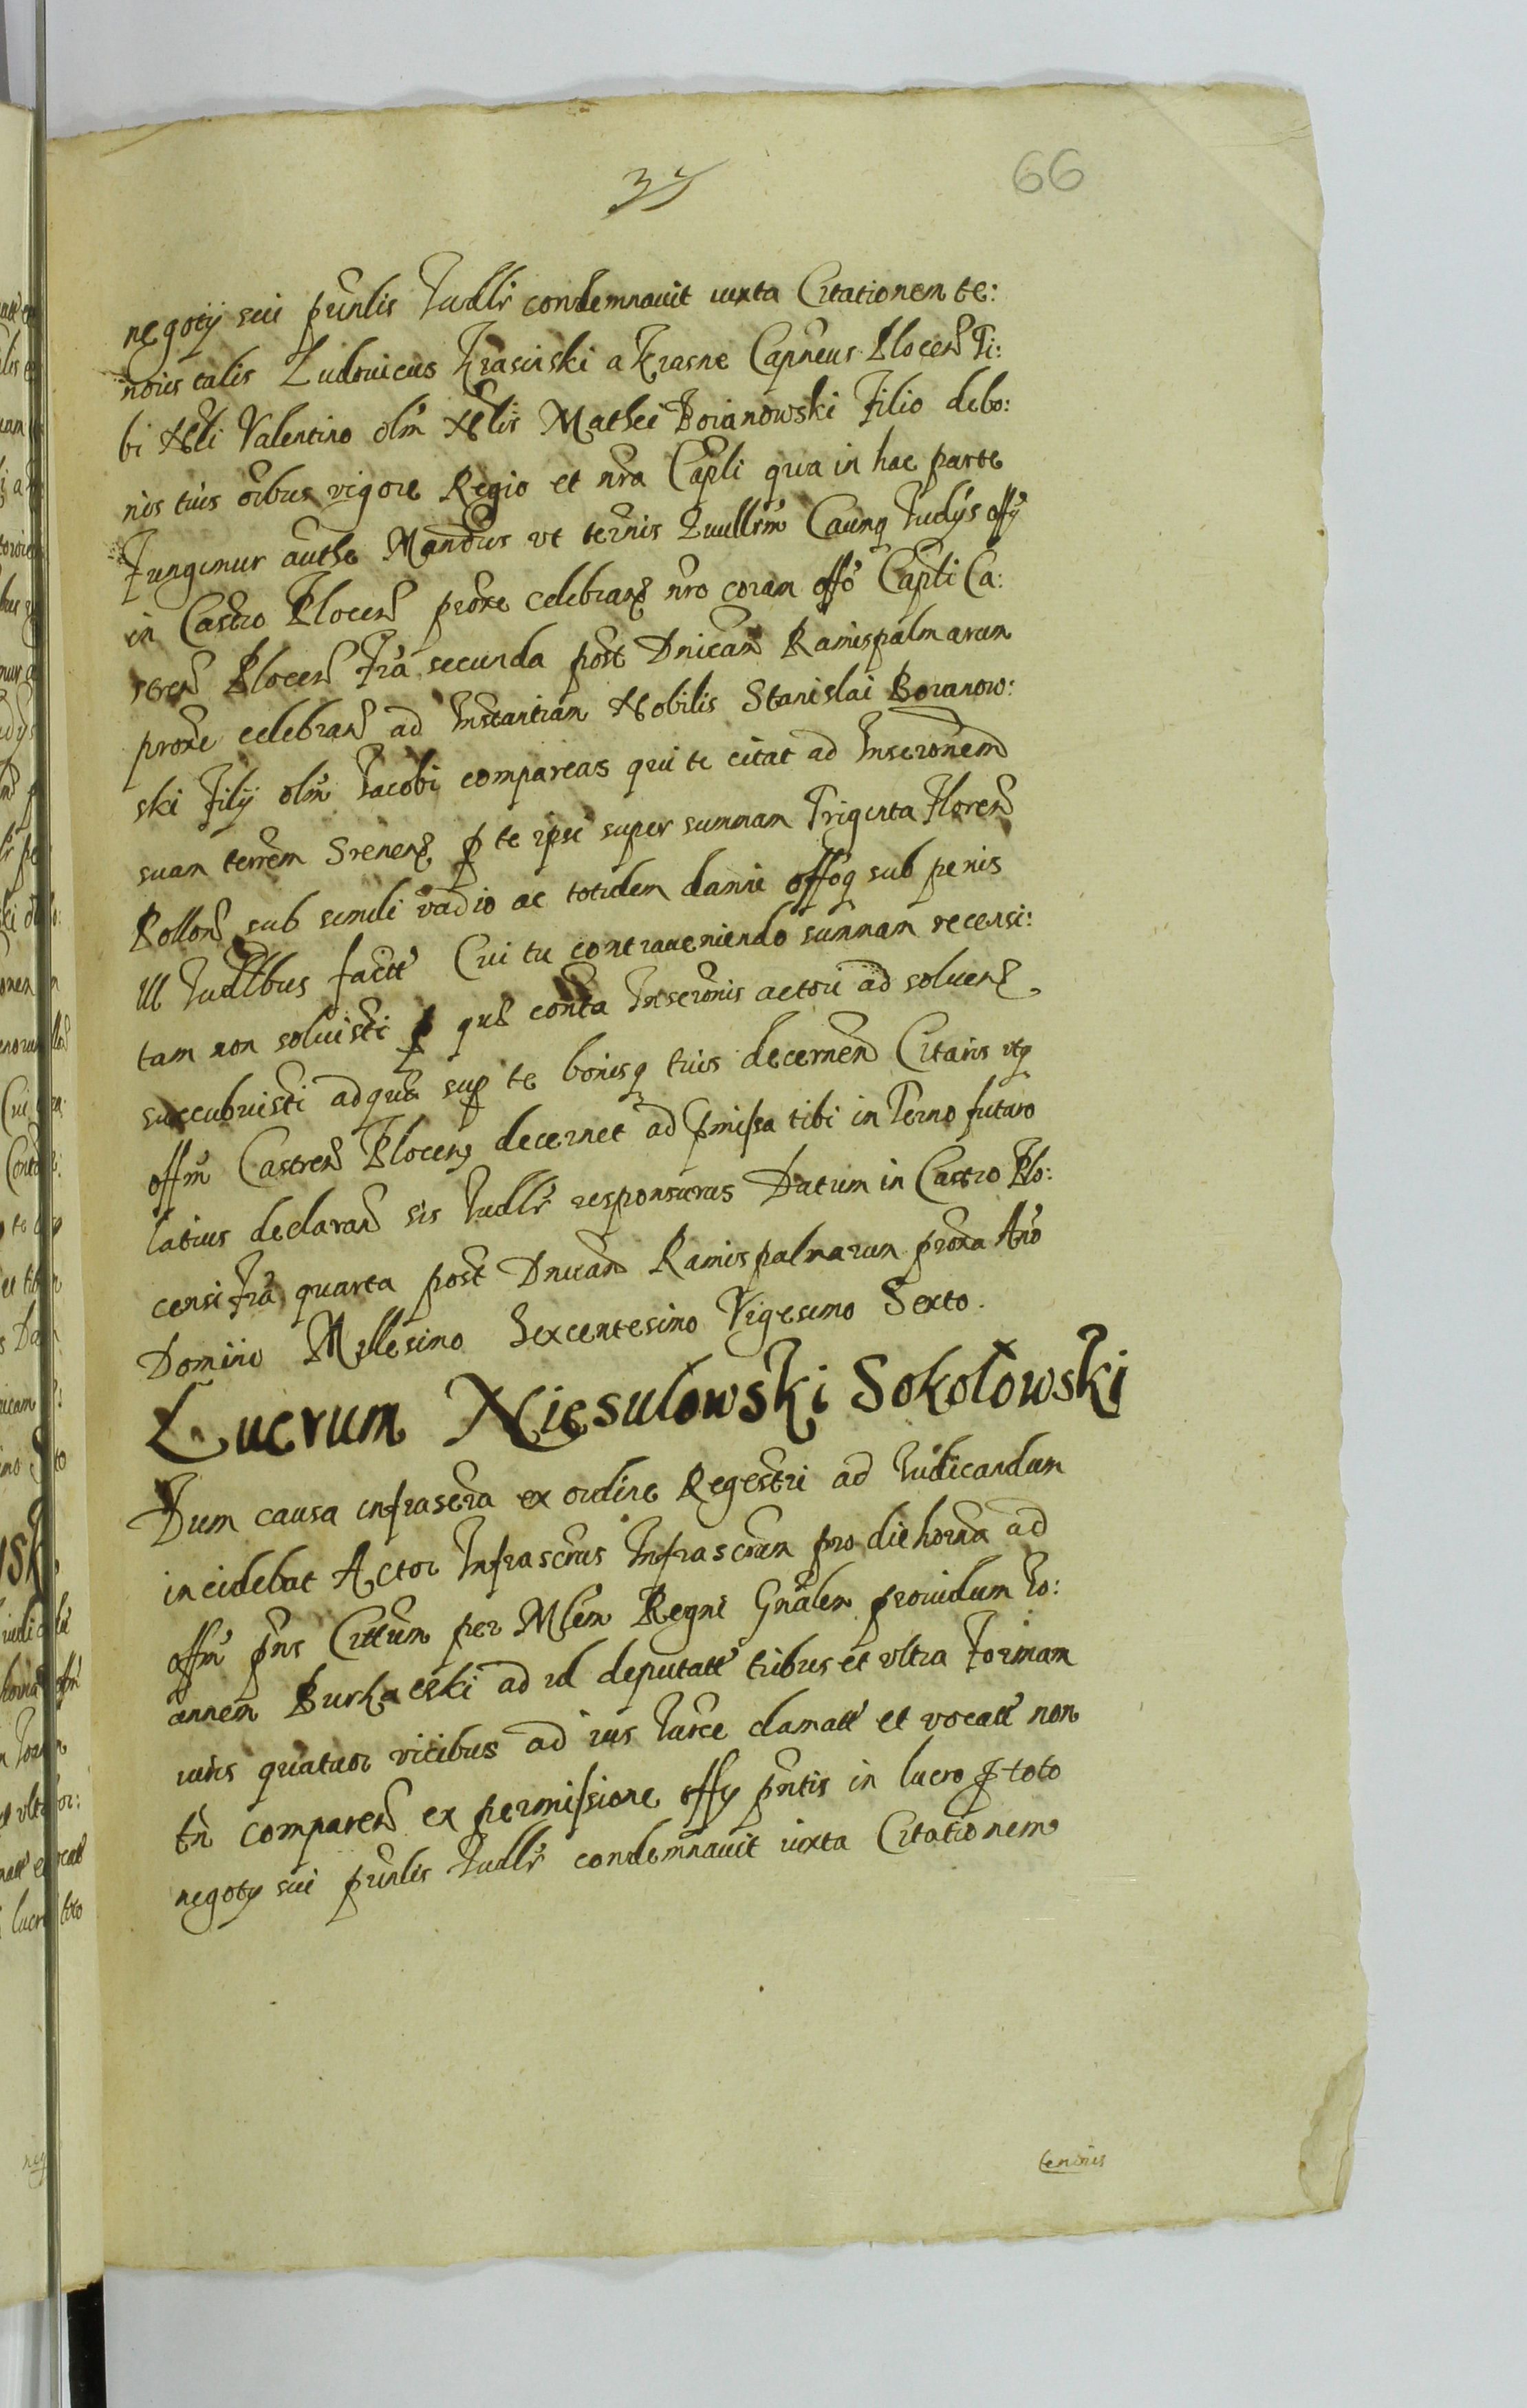 37
66
negotÿ sui prinlis Iudlr condemnauit iuxta Citationem te:
noris talis Ludouicus Krasinski a Krasne Capneus Plocen Ti:
bi Nbli Valentino olim Nblis Mathei Boianowski Filio de bo:
nis tuis oibus vigore Regio et nra Capli qua in hac parte
Fungimur authe Mandus vt ternis Quullrm Caunq Iudÿs offÿ
in Castro Plocen proxe celebran nro coram offo Capli Ca:
stren Plocen Fria secunda post Dnicam Ramispalmarum
proxe celebran ad Instantiam Nobilis Stanislai Boianow:
ski Filÿ olim Iacobi compareas qui te citat ad Inscronem
suam terrem Srenen p te ipse super summam Triginta Floren
Pollon sub simili vadio ac totidem damni offoq sub penis
Ill Iudlbus factt Cui tu contraueniendo summam recensi:
tam non soluisti p que conta Inscronis actori ad soluen
succubuisti ad que sup te bonisq tuis decernen Citaris vtq
offm Castren Plocen decernet ad pmissa tibi in Terno futuro
latius declaran sis Iudlr responsurus Datum in Castro Plo:
censi Fria quarta post Dnicam Ramispalmarum proxa Ano
Domini Millesimo Sexcentesimo Vigesimo Sexto.
Lucrum Niesulowski Sokołowski
Dum causa infrascra ex ordine Regestri ad Iudicandum
incidebat Actor Infrascrus Infrascrum pro die horna ad
offm pns Cittum per Mlem Regni Gnalem prouidum Io:
annem Burkacki ad id deputatt tribus et vltra Formam
iuris quatuor vicibus ad ius Iurce clamatt et vocatt non
tn comparen ex permissione offÿ pntis in lucro p toto
negotÿ sui prinlis Iudlr condemnauit iuxta Citationem
tenoris